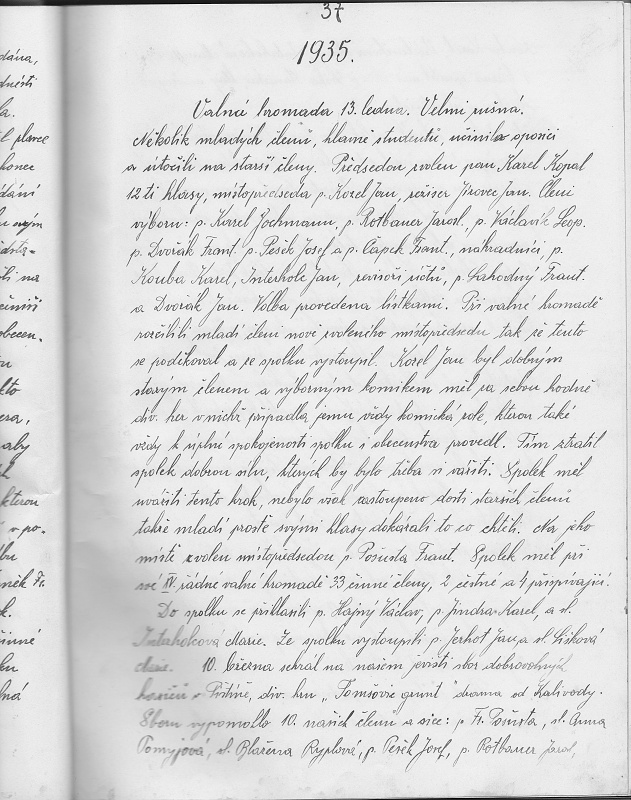 37
1935.
Valná hromada 13. ledna. Velmi rušná.
dána,
Několik mladých členů, hlavně studentů, učinila oposici
a útočili na starší členy. Předsedou zvolen pan Karel Kopal
12 ti hlasy, místopředseda p. Kozel Jan, režiser Jírovec Jan. Členi
výboru: p. Karel Jochmann, p. Rotbauer Jarosl., p. Václavík Leop.
p. Dvořák Frant. p. Pešek Josef a p. Čapek Frant., nahradníci p.
Kouba Karel, Interhole Jan, revisoři účtů, p. Lahodný Frant.
a Dvořák Jan. Volba provedena lístkami. Při valné hromadě
rozčílili mladí členi nově zvoleného místopředsedu tak že tento
se poděkoval a ze spolku vystoupil. Kozel Jan byl dobrým
starým členem a výborným komikem měl za sebou hodně
div. her v nichž připadla jemu vždy komická role, kterou také
vždy k úplné spokojenosti spolku i obecenstva provedl. Tím ztratil
spolek dobrou sílu, kterých by bylo třeba si vážiti. Spolek měl
uvážiti tento krok, nebylo však zastoupeno dosti starších členů
takže mladí prostě svými hlasy dokázali to co chtěli. Na jeho
místě zvolen místopředsedou p. Pošusta Frant. Spolek měl při
své IV řádné valné hromadě 33 činné členy, 2 čestné a 4 přispívající.
Do spolku se přihlásili p. Hajný Václav, p. Jindra Karel, a sl.
Intaholcová Marie. Ze spolku vystoupili p. Jerhot Jan a sl. Lišková
Marie. 10. března sehrál na našem jevišti sbor dobrovolných
hasičů v Pištíně, div. hru „Tomšovic grunt" drama od Kalivody.
Sboru vypomohlo 10. našich členů a sice: p Fr. Pošusta, sl. Anna
Tomyjová, sl. Blažena Ryplová, p. Pešek Josef, p. Rotbauer Jarosl,